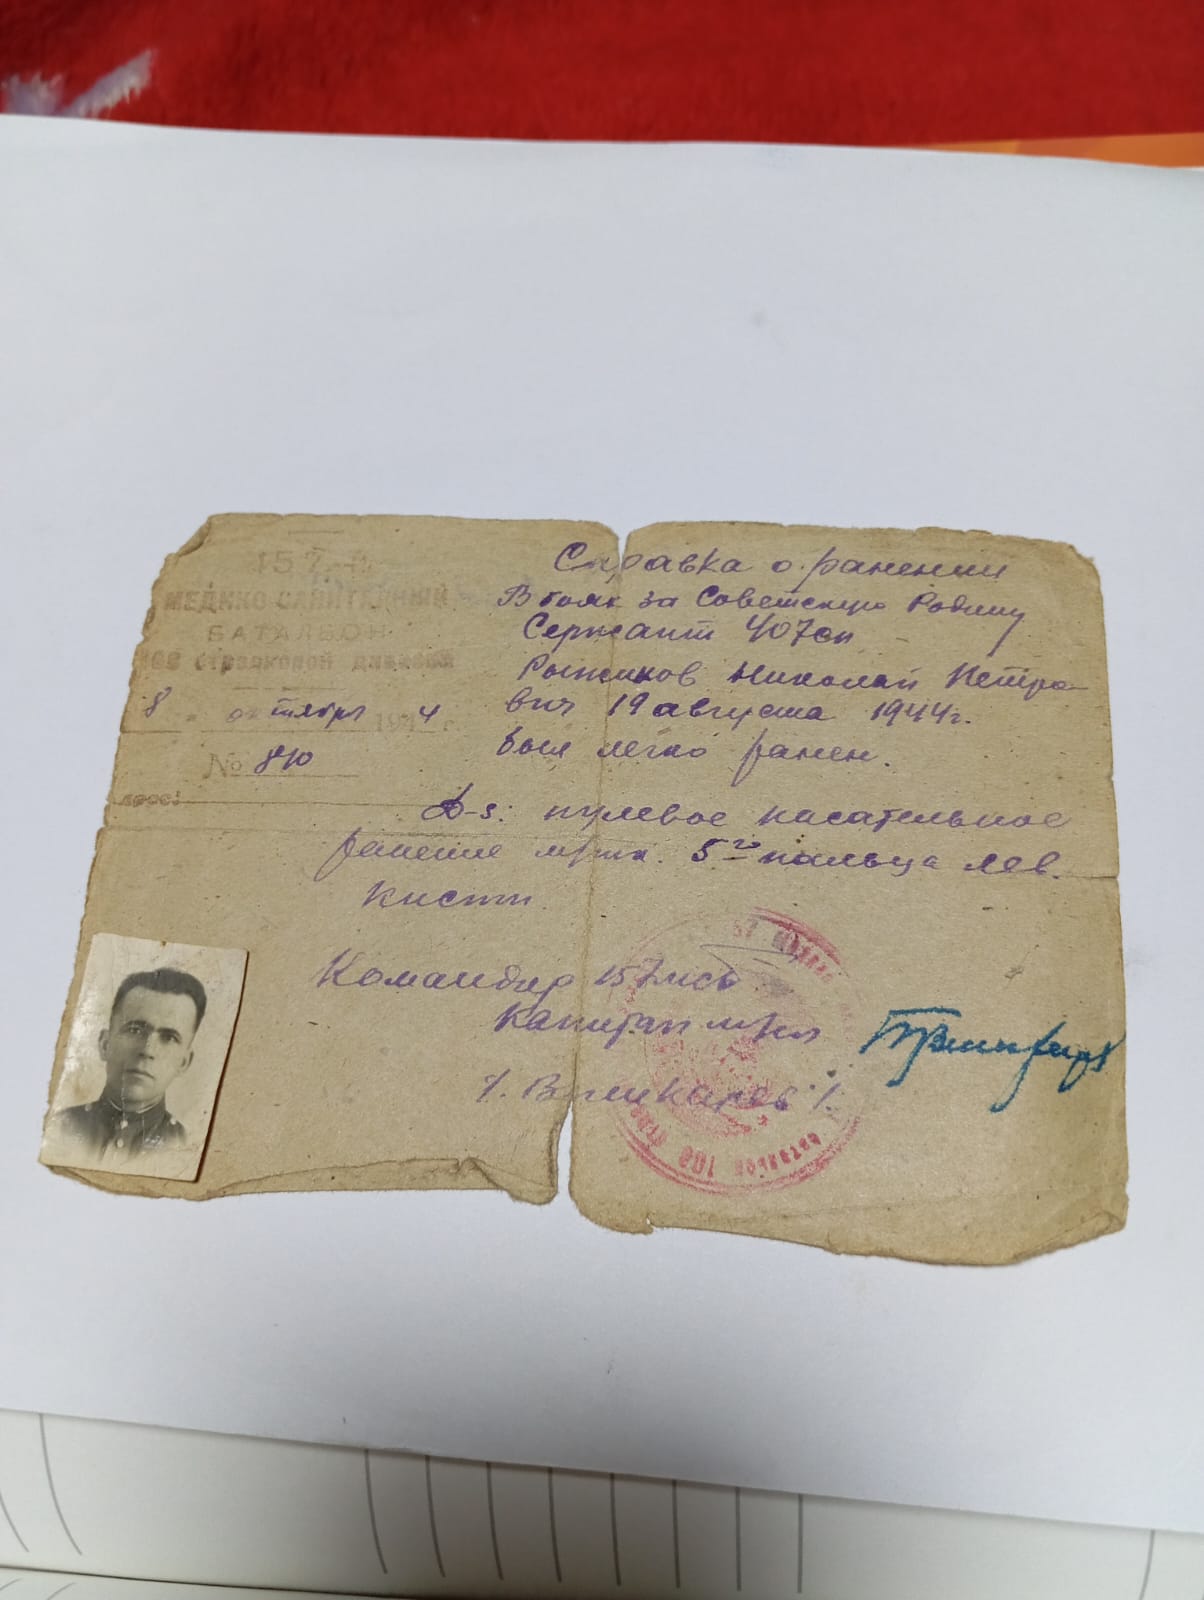 157-й
МЕДИКО САНИТАРНЫЙ
БАТАЛЬОН
стрелковой дивизии
8 " октября 1944 г.
№ 810
Адрес:
Справка о ранении
В боях за Советскую Родину
Сержант 407сп
Рыжиков Николай Петро-
вич 19 августа 1944г.
был легко ранен.
D-s: пулевое касательное
ранение мягк. 5го пальца лев.
кисти.
Командир 157мсб
Капитан м/сл
батальон 108